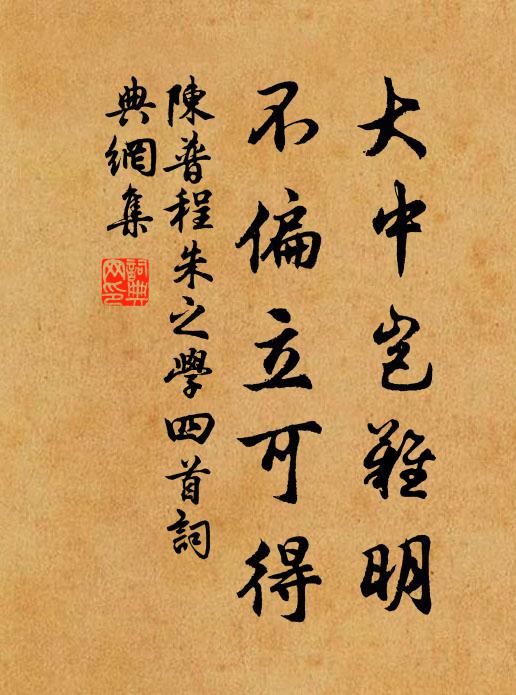 大中岂難明
不偏立可得
陳普程朱之學四首詞
典網集
詞典網印